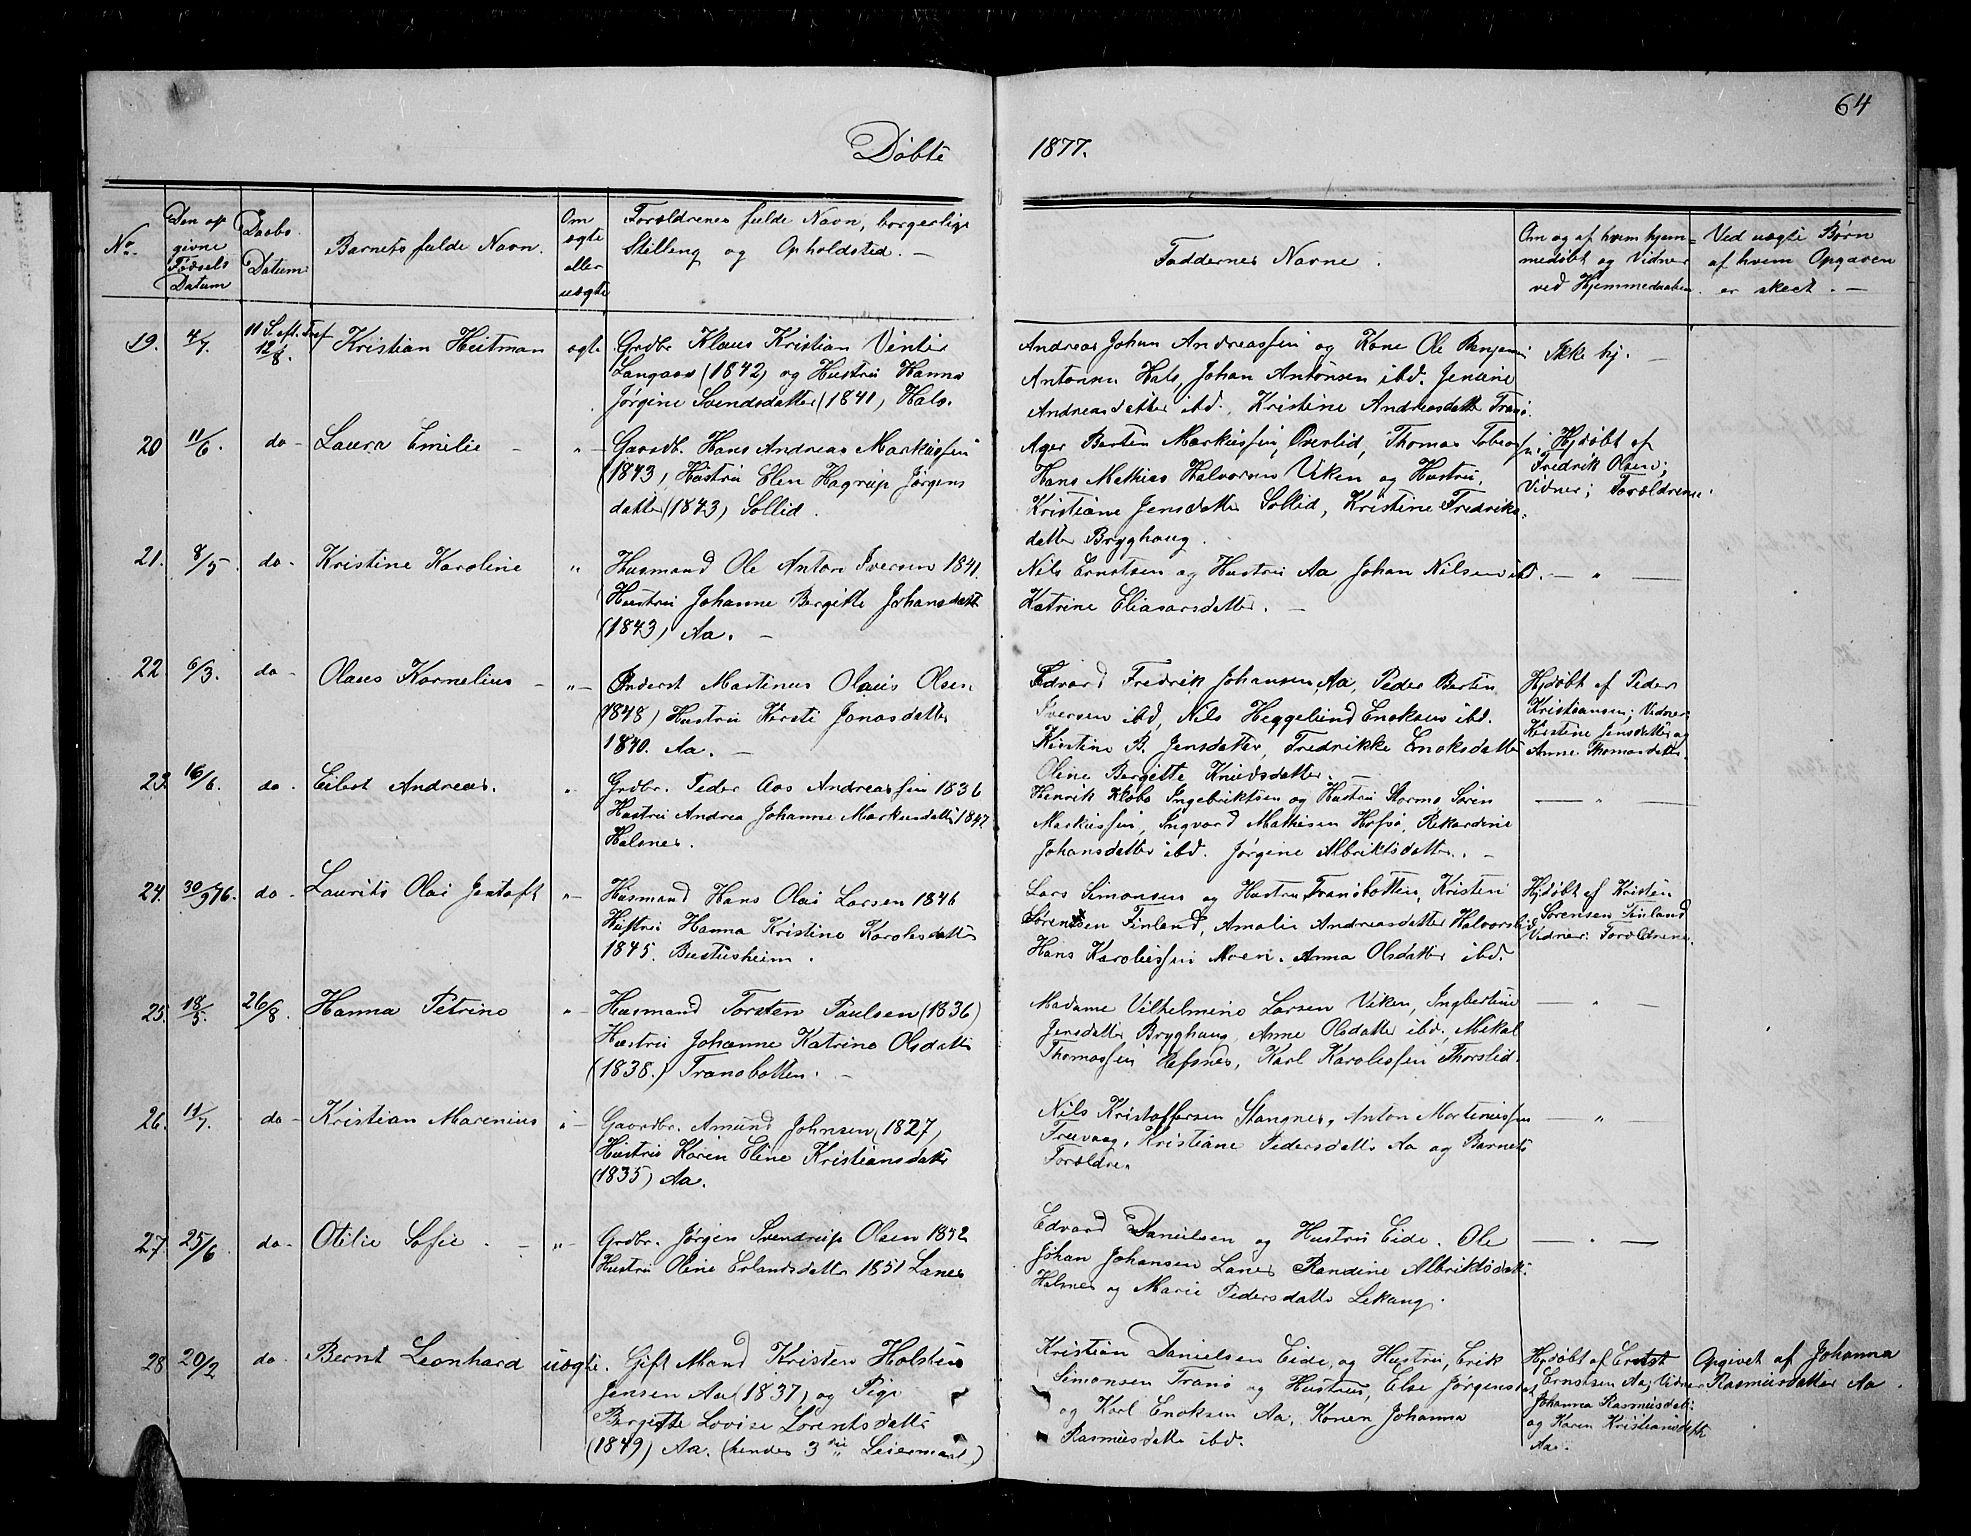 64
Døbte 1877.
No.
Den op
givne
Fødsels
Datum
Daabs
Datum
Barnets fulde Navn.
Om
ægte
eller
uægte
Forældrenes fulde Navn, borgerlige
Stilling og Opholdsted. —
Faddernes Navne.
Om og af hvem hjem=
medøbt og Vidner
ved Hjemmedaaben
Ved uægte Børn
af hvem Opgaven
er skeet. —
19. 4/7. 11 S. eft. Tref 12/8. Kristian Heitman ægte
Grdbr. Klaus Kristian Vinter
Langaas (1842) og Hustru Hanna
Jørgine Svendsdatter (1841) Hals.
Andreas Johan Andreassen og Kone Ole Benjamin
Antonsen Hals, Johan Antonsen ibd. Jensine
Andreasdatter ibd., Kristine Andreasdatter Tranø.
Ikke hj. —
20 11/6. do - Laura Emilie - " -
Gaardb. Hans Andreas Markussen
(1843) Hustru Elen Hagrup Jørgens
datter (1843) Sollid.
Ager Berten Markussen, Overlid, Thomas Tobiassen,
Hans Mathias Halvorsen Viken og Hustru,
Kristiane Jensdatter Sollid, Kristine Fredriks=
datter Brygghaug.
Hjdøbt af
Fredrik Olsen;
Vidner; Forældrene.
21. 8/5 do - Kristine Karoline "
Husmand Ole Anton Iversen 1841.
Hustru Johanne Bergitte Johansdatt
(1843) Aa. —
Nils Ernstsen og Hustru Aa Johan Nilsen ibd. — " —
Katrine Eliasarsdatter. —
22 6/3. do - Olaus Kornelius - " -
Inderst Martinus Olaus Olsen
(1848) Hustru Kersti Jonasdatter
1840. Aa. —
Edvard Fredrik Johansen Aa, Peder Berten
Iversen ibd, Nils Heggelund Enoksen ibd.
Kirstine B. Jensdatter, Fredrikke Enoksdatter
Oline Bergitte Knudsdatter. —
Hjdøbt af Peder
Kristiansen; Vidner:
Kerstine Jensdatter og
Anne Thomasdatter.
23. 16/6. do - Eilert Andreas. "
Grdbr. Peder Aas Andreassen 1836
Hustru Andrea Johanne Markusdatter 1847
Halsnes.
Henrik Klæbo Ingebriktsen og Hustru Stormo Søren
Markussen, Ingvard Mathisen Hofsø, Rikardine
Johansdatter ibd. Jørgine Albriktsdatter. —
— " —
24. 30/9 76. do - Laurits Olai Jentoft " -
Husmand Hans Olai Larsen 1846
Hustru Hanna Kristine Karolusdatter
1845. Bustusheim.
Lars Simonsen og Hustru Tranøbotten, Kristen
Sørensen Finland, Amalie Andreasdatter Halvorslid
Hans Karolussen Moen. Anna Olsdatter ibd.
Hjdøbt af Kristen
Sørensen Finland
Vidner: Forældrene.
25. 18/5. 26/8. Hanna Petrine " -
Husmand Torsten Paulsen (1836)
Hustru Johanne Katrine Olsdatter
(1838.) Tranøbotten. —
Madame Vilhelmine Larsen Viken, Ingbertine
Jensdatter Brygghaug, Anne Olsdatter ibd, Mikal
Thomassen Refsnes, Karl Karolussen Thorslid.
— " —
26. 11/7. do - Kristian Marenius " -
Gaardbr. Amund Johnsen (1827)
Hustru Karen Eline Kristiansdatter
(1835) Aa.
Nils Kristoffersen Stangnes, Anton Mortinussen
Trævaag, Kristiane Pedersdatter Aa og Barnets
Forældre.
— " —
27. 25/6 do - Otilie Sofie. — " -
Grdbr. Jørgen Svendrup Olsen 1842
Hustru Oline Erlandsdatter 1851 Lanes
Edvard Danielsen og Hustru Eide. Ole
Johan Johansen Lanes Randine Albriktsdatt:
Halsnes og Marie Pedersdatter Lekang.
— " —
28 20/2 do - Bernt Leonhard uægte.
Gift Mand Kristen Holstens
Jensen Aa (1837) og Pige
Bergitte Lovise Lorentsdatter
(1849) Aa. (hendes 3die Leiermaal.)
Kristian Danielsen Eide, og Hustru, Erik
Simonsen Tranø og Hustru, Else Jørgensdat
og Karl Enoksen Aa, Konen Johanna
Rasmusdatter ibd.
Hjdøbt af Ernst
Ernstsen Aa; Vidner
Johanna Rasmusdatter
og Karen Kristiansdatter
Aa.
Opgivet af Johanna
Rasmusdatter Aa.